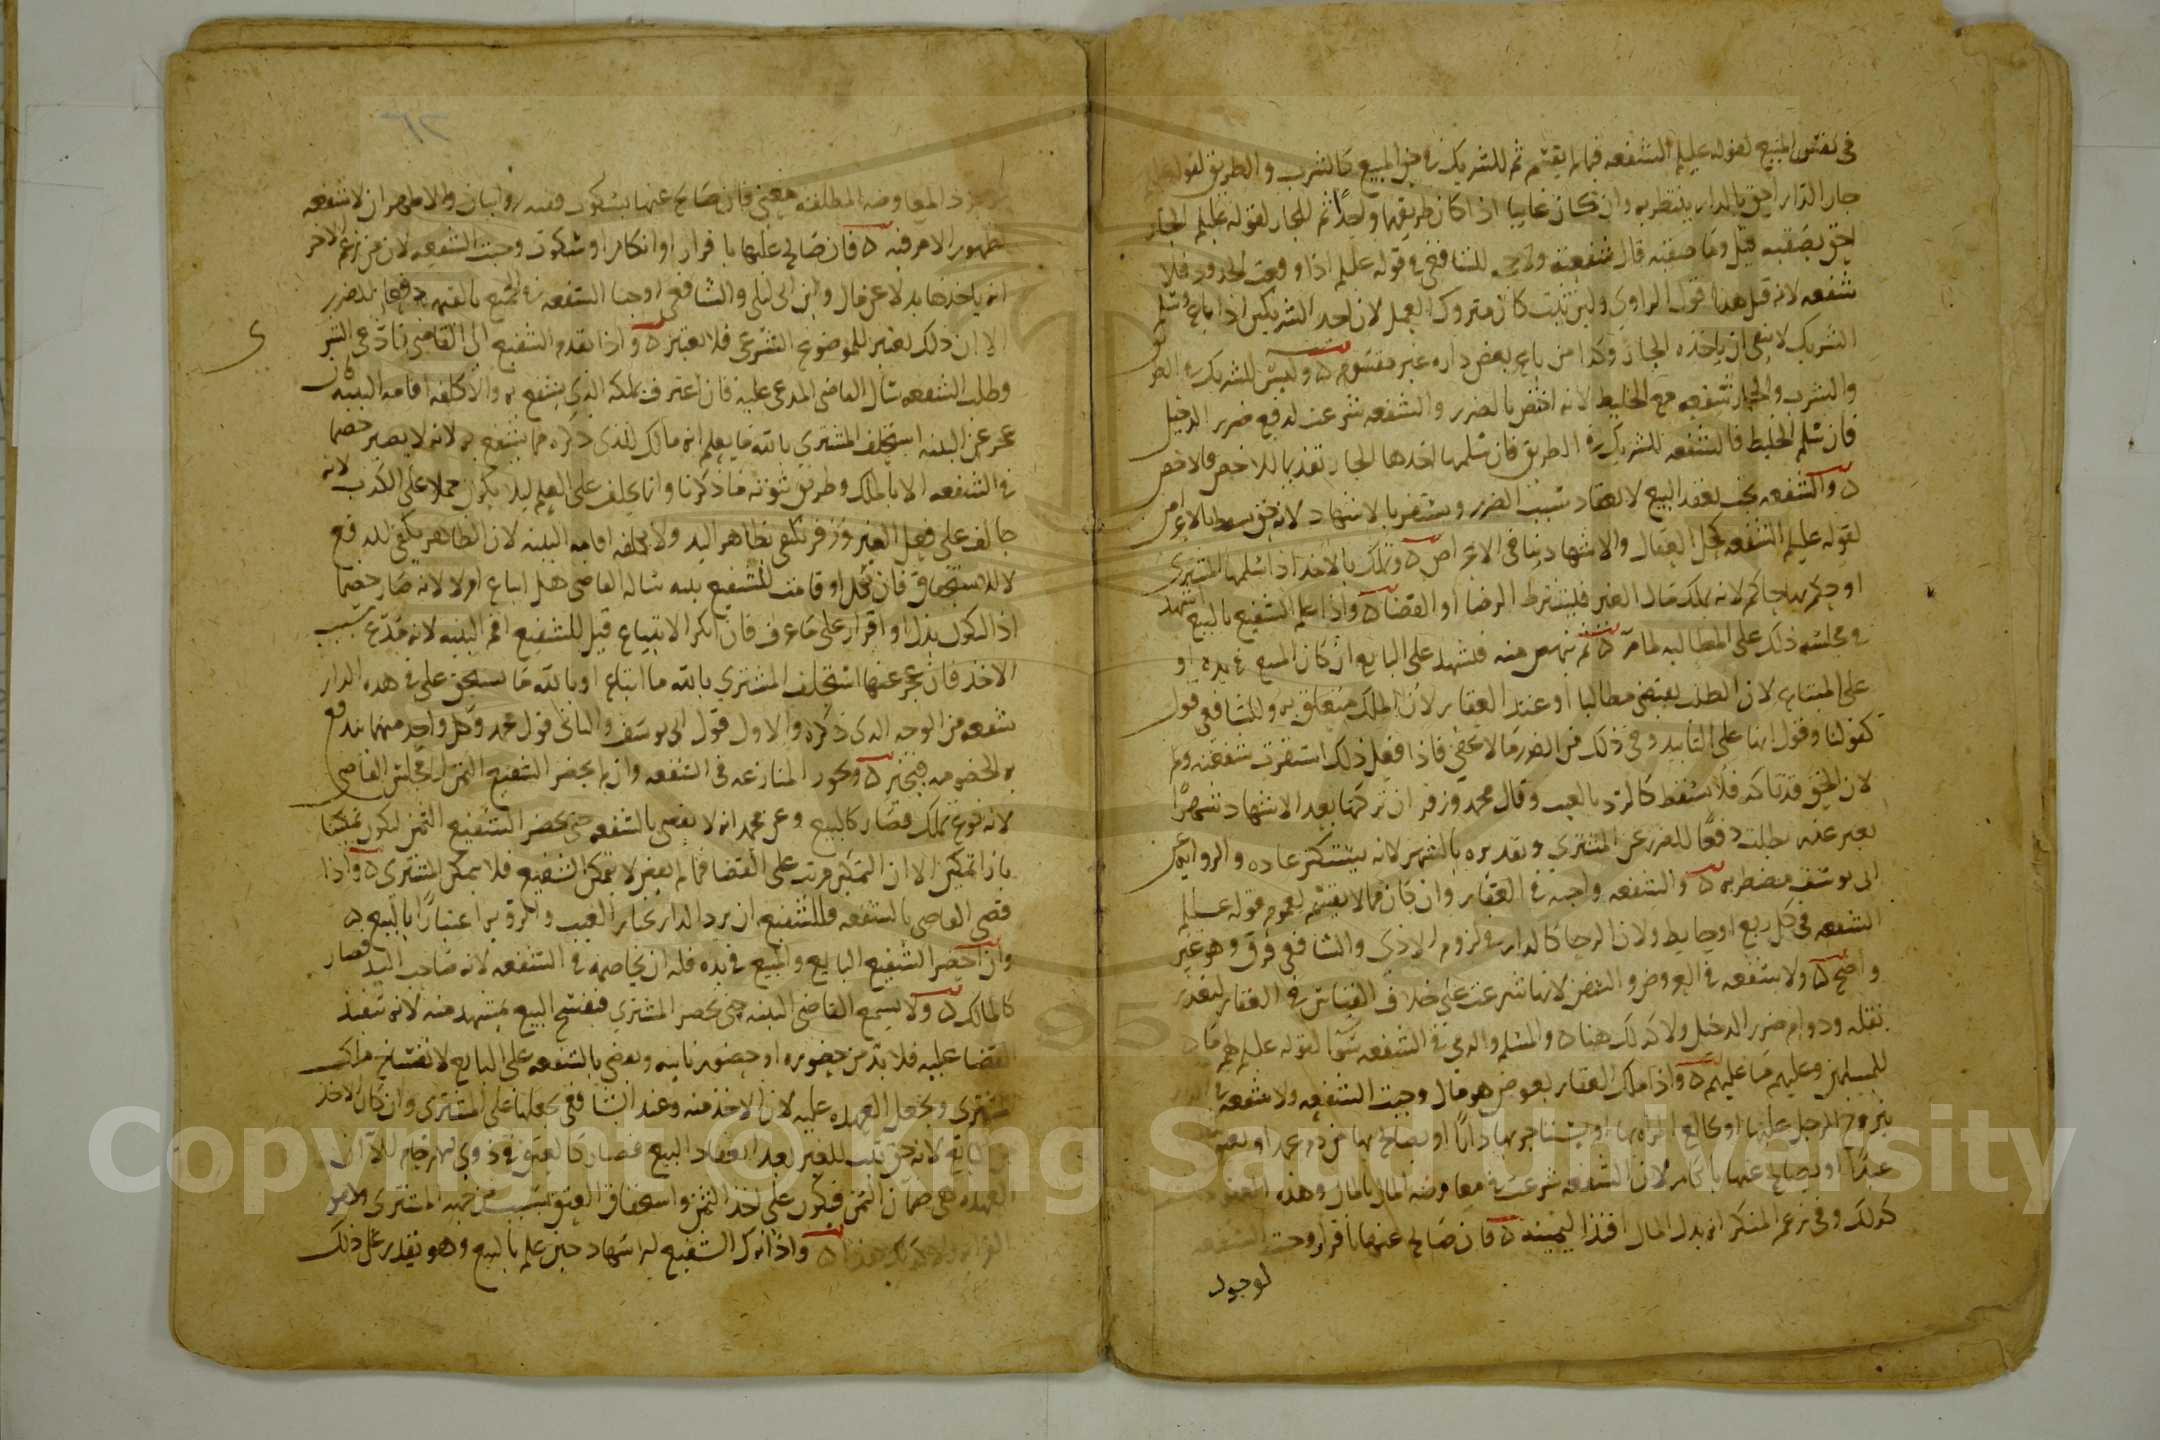 في نفس المبيع لقوله عليلم الشفعه فيما لم يقسم ثم للشريك في حق المبيع كالشرب والطريق لقوله
جار الدار احق بالدار ينتظر به وان كان غايبا اذا كان طريقهما واحدا ثم للجار لقوله عليلم الجار
احق بصقبه قيل وما صقبه قال شفعته ولا للشافعي في قوله عليلم اذا وقعت الحدود فلا
شفعه لانه قيل هذا قول الراوي ولين ثبت كان متروك العمل لان احد الشريكين اذا باع وسلم
الشريك لا ينفي ان ياخذه الجار وكذا من باع بعض داره غير مقسوم ه وليس للشريك في الطريق
والشرب والجار شفعه مع الخليط لانه اخص بالضرر والشفعه شرعت لدفع ضرر الدخيل
فان سلم الخليط فالشفعه للشريك في الطريق فان سلمها اخذها الجار تقديما للاخص فالاخص
ه والشفعه تجب بعقد البيع لانعقاد سبب الضرر وتستقر بالاشهاد لانه حق يبطل بالاعراض
لقوله عليلم الشفعه كحل العقال والاشهاد ينافي الاعراض ه وتملك بالاخذ اذا سلمها المشتري
او حكم بها حاكم لانه يملك مال الغير فيشترط الرضا او القضا ه واذا علم الشفيع بالبيع اشهد
في مجلسه ذلك على المطالبه لما مر ه ثم ينهض منه فيشهد على البايع ان كان المبيع في يده او
على المبتاع لان الطلب يقتضي مطالبا او عند العقار لان الملك متعلق به وللشافعي قول
كقولنا وقول انها على التابيد وفي ذلك من الضرر ما لا يخفى فاذا فعل ذلك استقرت شفعته ولم
لان الحق قد تاكد فلا يسقط كالرد بالعيب وقال محمد وزفر ان تركها بعد الاشهاد شهرا
بغير عذر بطلت دفعا للضرر عن المشتري وتقديره بالشهر لانه يستكثر عاده والروايه عن
ابي يوسف مضطربه ه والشفعه واجبه في العقار وان كان مما لا يقسم لعموم قوله عليلم
الشفعه في كل ربع او حايط ولان الرحا كالدار في لزوم الاذى والشافعي فرق وهو غير
واضح ه ولا شفعه في العروض والسفن لانها شرعت على خلاف القياس في العقار لتعذر
نقله ودوام ضرر الدخيل ولا كذلك هنا ه والمسلم والذمي في الشفعه سوا لقوله عليلم لهم ما
للمسلمين وعليهم ما عليهم ه واذا ملك العقار بعوض هو مال وجبت الشفعه ولا شفعه في
يتزوج الرجل عليها او يخالع المراه بها او يستاجر بها دارا او يصالح بها من دم عمد او يعتق
عبدا او يصالح عنها بانكار لان الشفعه شرعت في معاوضه المال بالمال وهذه
كذلك وفي زعم المنكر انه بدل المال افتدا ليمينه ه فان صالح عنها باقرار وجبت الشفعه
لوجود
المعاوضه المطلقه معنى فان صالح عنها بسكوت ففيه روايتان والاظهر ان لا شفعه
لظهور الامر فيه ه فان صالح عليها باقرار او انكار او سكوت وجبت الشفعه لان من زعم الاخر
انه ياخذها بدلا عن مال وابن ابي ليلى والشافعي اوجبا الشفعه في الجميع بالقيمه دفعا للضرر
الا ان ذلك تغيير للموضوع الشرعي فلا يعتبر ه واذا تقدم الشفيع الى القاضي فادعى الشرا
وطلب الشفعه سال القاضي المدعى عليه فان اعترف بملكه الذي يشفع به والا كلفه اقامه البينه فان
عجز عن البينه استحلف المشتري بالله ما يعلم انه مالك للذي ذكره مما يشفع به لانه لا يصير خصما
في الشفعه الا بالملك وطريق ثبوته ما ذكرنا وانما يحلف على العلم ليلا يكون حملا على الكذب لانه
حالف على فعل الغير وزفر يكتفي بظاهر اليد ولا يكلفه اقامه البينه لان الظاهر يكفي للدفع
لا للاستحقاق فان نكل او قامت للشفيع بينه ساله القاضي هل ابتاع ام لا لانه صار خصما
اذ النكول بذل او اقرار على ما عرف فان انكر الابتياع قيل للشفيع اقم البينه لانه مدع سبب
الاخذ فان عجز عنها استحلف المشتري بالله ما ابتاع او بالله ما يستحق على في هذه الدار
شفعه من الوجه الذي ذكره والاول قول ابي يوسف والثاني قول محمد وكل واحد منهما يندفع
به الخصومه فيخير ه وتجوز المنازعه في الشفعه وان لم يحضر الشفيع الثمن الى مجلس القاضي
لانه نوع تملك فصار كالبيع وعن محمد انه لا يقضي بالشفعه حتى يحضر الشفيع الثمن ليكون تمكينا
بازا تمكين الا ان التمكين مرتب على القضا فما لم يقض لا يتمكن الشفيع فلا يمكن المشتري ه واذا
قضى القاضي بالشفعه فللشفيع ان يرد الدار بخيار العيب والرويه اعتبارا بالبيع ه
وان احضر الشفيع البايع والمبيع في يده فله ان يخاصمه في الشفعه لانه صاحب اليد فصار
كالمالك ه ولا يسمع القاضي البينه حتى يحضر المشتري فيفسخ البيع بمشهد منه لانه تنفيذ
القضا عليه فلا بد من حضوره او حضور نايبه ويقضي بالشفعه على البايع لانفساخ ملك
المشتري ويجعل العهده عليه لان الاخذ منه وعند الشافعي يجعلها على المشتري وان كان الاخذ
من البايع لانه حق ثبت للغير بعد انعقاد البيع فصار كالعتق في ذوي الارحام الا ان
العهده هي ضمان الثمن فتكون على اخذ الثمن واستحقاق العتق بسبب من جهه المشتري
ولا كذلك هذا ه واذا ترك الشفيع الاشهاد حين علم بالبيع وهو يقدر على ذلك